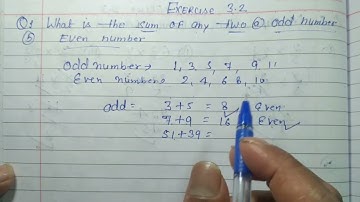 EXERCISE 3.2
Q1 What is the sum of any two (a) odd number
(b) Even number
Odd number → 1, 3, 5, 7, 9, 11
Even number → 2, 4, 6, 8, 10
odd = 3 + 5 = 8 Even
7 + 9 = 16 Even
51 + 39 =